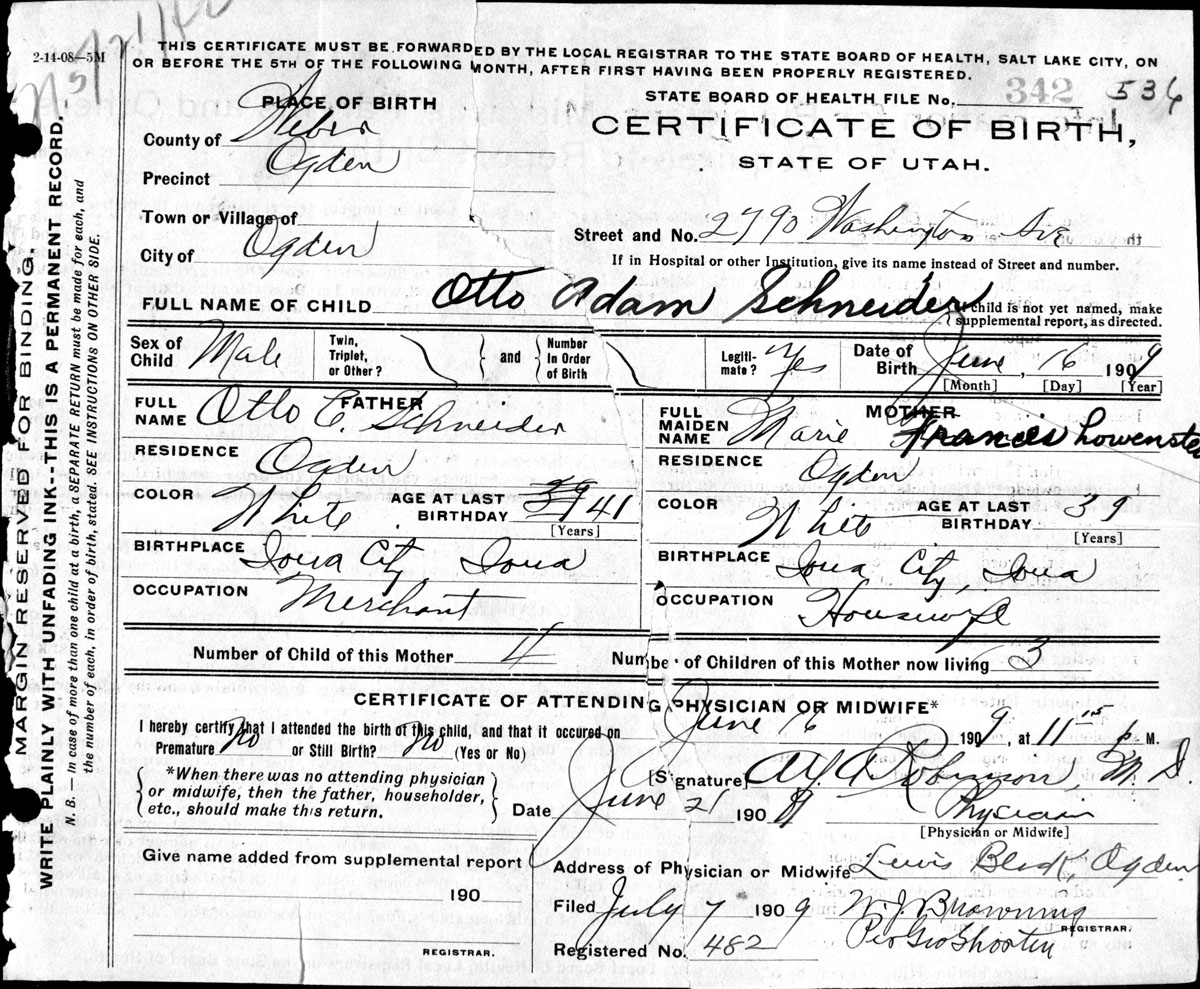 2-14-08—5M
THIS CERTIFICATE MUST BE FORWARDED BY THE LOCAL REGISTRAR TO THE STATE BOARD OF HEALTH, SALT LAKE CITY, ON
OR BEFORE THE 5TH OF THE FOLLOWING MONTH, AFTER FIRST HAVING BEEN PROPERLY REGISTERED.
STATE BOARD OF HEALTH FILE No. 342 536
PLACE OF BIRTH
CERTIFICATE OF BIRTH,
STATE OF UTAH.
County of Weber
Precinct Ogden
Town or Village of
City of Ogden
Street and No. 2790 Washington Ave
If in Hospital or other Institution, give its name instead of Street and number.
FULL NAME OF CHILD Otto Adam Schneider
If child is not yet named, make supplemental report, as directed.
Sex of Child Male
Twin, Triplet, or Other?
and
Number In Order of Birth
Legitimate? Yes
Date of Birth June, 16 1909
[Month] [Day] [Year]
FATHER
FULL NAME Otto C. Schneider
RESIDENCE Ogden
COLOR White
AGE AT LAST BIRTHDAY 39 41
[Years]
BIRTHPLACE Iowa City Iowa
OCCUPATION Merchant
MOTHER
FULL MAIDEN NAME Marie Francis Lowenste
RESIDENCE Ogden
COLOR White
AGE AT LAST BIRTHDAY 39
[Years]
BIRTHPLACE Iowa City, Iowa
OCCUPATION Housewife
Number of Child of this Mother 4
Number of Children of this Mother now living 3
CERTIFICATE OF ATTENDING PHYSICIAN OR MIDWIFE*
I hereby certify that I attended the birth of this child, and that it occured on June 16 1909, at 11 15 P. M.
Premature No or Still Birth? No (Yes or No)
*When there was no attending physician
or midwife, then the father, householder,
etc., should make this return.
[Signature] Robinson, M.D.
Date June 21 190
Physician
[Physician or Midwife]
Give name added from supplemental report
190
REGISTRAR.
Address of Physician or Midwife Lewis Block, Ogden
Filed July 7 1909 W. J. Browning
REGISTRAR.
Registered No. 482
MARGIN RESERVED FOR BINDING.
WRITE PLAINLY WITH UNFADING INK--THIS IS A PERMANENT RECORD.
N. B. — In case of more than one child at a birth, a SEPARATE RETURN must be made for each, and
the number of each, in order of birth, stated. SEE INSTRUCTIONS ON OTHER SIDE.